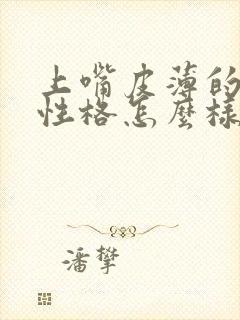 上嘴皮薄的
性格怎麼樣
潘攀